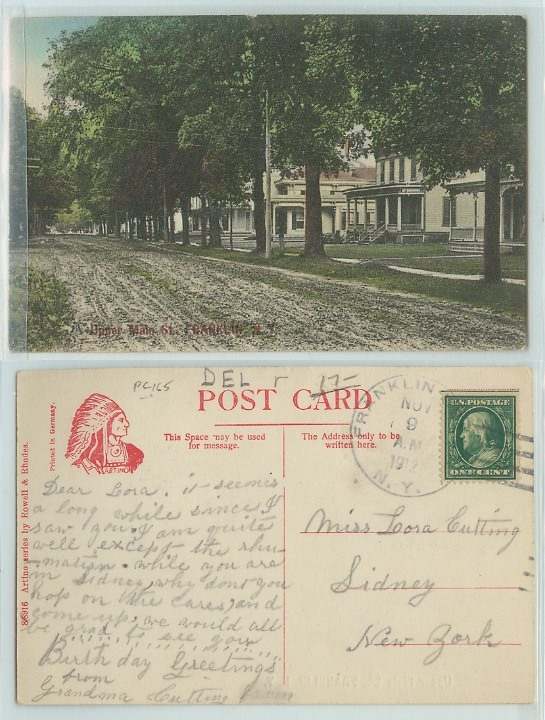 Upper Main St., FRANKLIN, N. Y.
PC165
DEL
17-
POST CARD
Printed in Germany.
ARTINO
This Space may be used
for message.
The Address only to be
written here.
FRANKLIN
NOV
9
A.M.
1912
N.Y.
U.S. POSTAGE
ONE CENT
86916 Artino series by Rowell & Rhodes.
Dear Lora, it seems
a long while since I
saw you. I am quite
well except the rhu-
matism. while you are
in Sidney why dont you
hop on the cares, and
come up, we would all
be glad to see you
Birth day Greetings
from
Grandma Cutting
Miss Lora Cutting
Sidney
New York